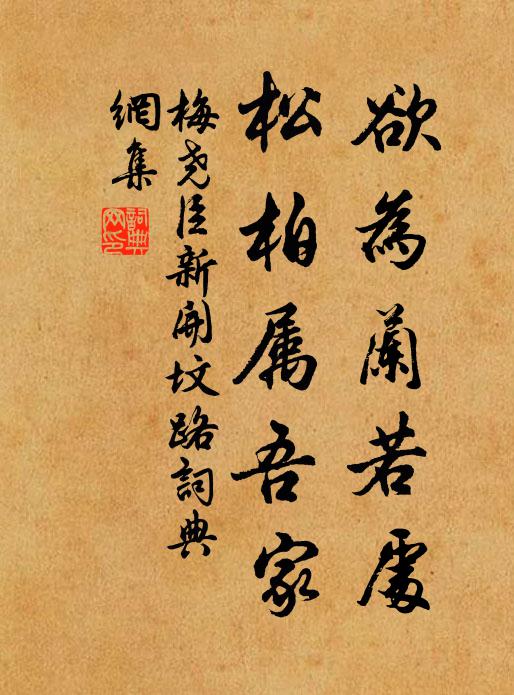 欲為蘭若處
松柏属吾家
梅堯臣新開墳路詞典
網集
詞典網印